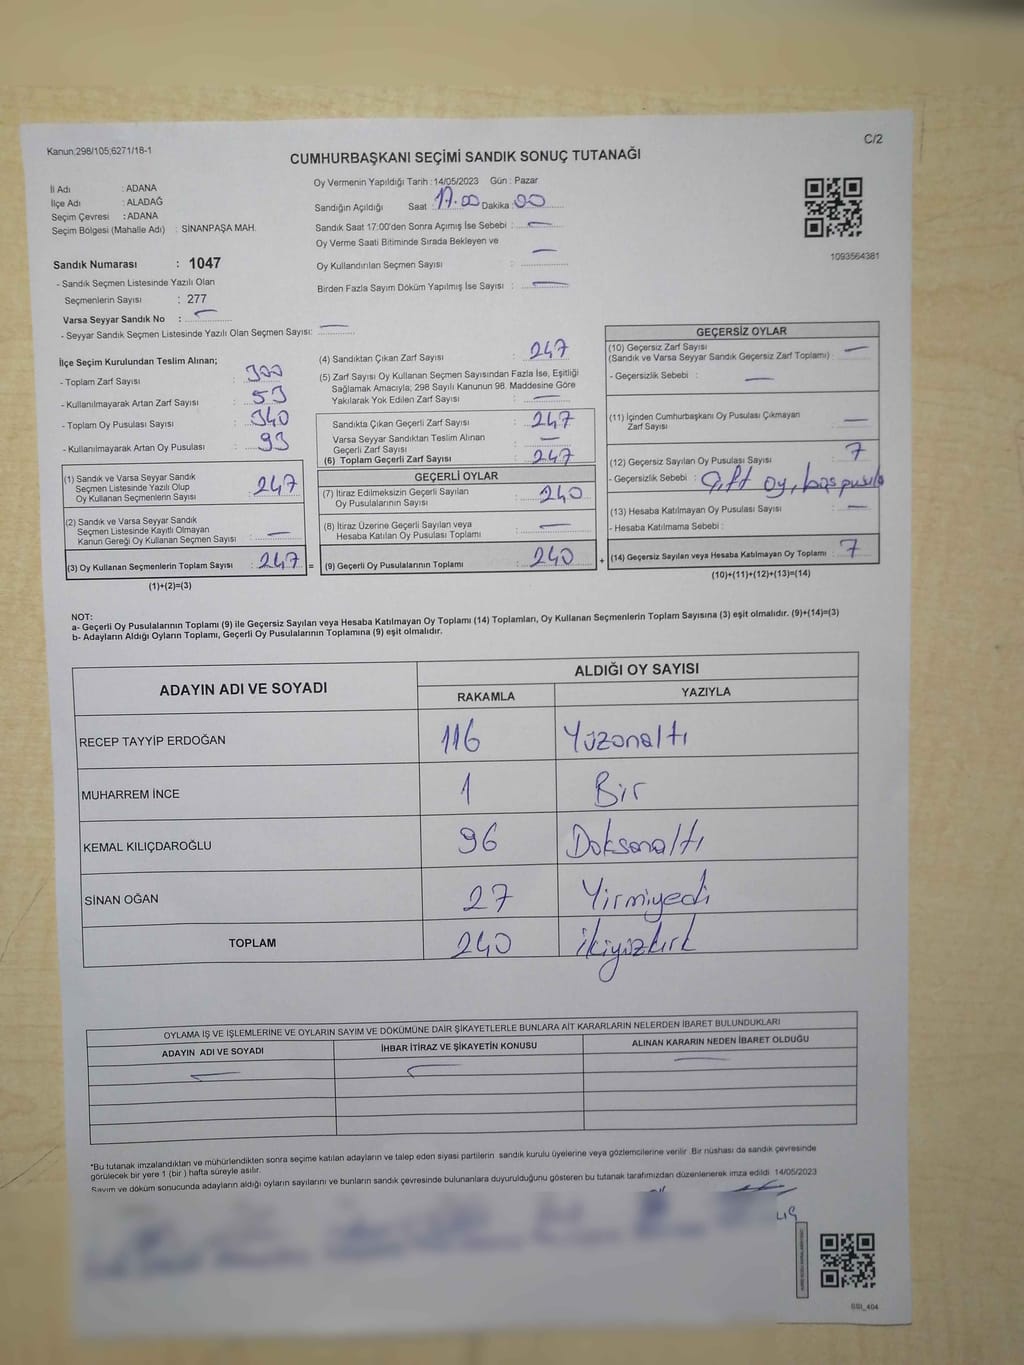 Kanun;298/105;6271/18-1
C/2
CUMHURBAŞKANI SEÇİMİ SANDIK SONUÇ TUTANAĞI
İl Adı : ADANA
İlçe Adı : ALADAĞ
Seçim Çevresi : ADANA
Seçim Bölgesi (Mahalle Adı) : SİNANPAŞA MAH.
Sandık Numarası : 1047
- Sandık Seçmen Listesinde Yazılı Olan
Seçmenlerin Sayısı : 277
Varsa Seyyar Sandık No : —
- Seyyar Sandık Seçmen Listesinde Yazılı Olan Seçmen Sayısı: —
Oy Vermenin Yapıldığı Tarih : 14/05/2023 Gün : Pazar
Sandığın Açıldığı Saat : 17.00 Dakika : 00
Sandık Saat 17:00'den Sonra Açımış İse Sebebi : —
Oy Verme Saati Bitiminde Sırada Bekleyen ve
Oy Kullandırılan Seçmen Sayısı : —
Birden Fazla Sayım Döküm Yapılmış İse Sayısı : —
1093564381
İlçe Seçim Kurulundan Teslim Alınan;
- Toplam Zarf Sayısı : 300
- Kullanılmayarak Artan Zarf Sayısı : 53
- Toplam Oy Pusulası Sayısı : 340
- Kullanılmayarak Artan Oy Pusulası : 93
(1) Sandık ve Varsa Seyyar Sandık
Seçmen Listesinde Yazılı Olup
Oy Kullanan Seçmenlerin Sayısı : 247
(2) Sandık ve Varsa Seyyar Sandık
Seçmen Listesinde Kayıtlı Olmayan
Kanun Gereği Oy Kullanan Seçmen Sayısı : —
(3) Oy Kullanan Seçmenlerin Toplam Sayısı : 247 =
(1)+(2)=(3)
(4) Sandıktan Çıkan Zarf Sayısı : 247
(5) Zarf Sayısı Oy Kullanan Seçmen Sayısından Fazla İse, Eşitliği
Sağlamak Amacıyla; 298 Sayılı Kanunun 98. Maddesine Göre
Yakılarak Yok Edilen Zarf Sayısı : —
Sandıkta Çıkan Geçerli Zarf Sayısı : 247
Varsa Seyyar Sandıktan Teslim Alınan
Geçerli Zarf Sayısı : —
(6) Toplam Geçerli Zarf Sayısı : 247
GEÇERLİ OYLAR
(7) İtiraz Edilmeksizin Geçerli Sayılan
Oy Pusulalarının Sayısı : 240
(8) İtiraz Üzerine Geçerli Sayılan veya
Hesaba Katılan Oy Pusulası Toplamı : —
(9) Geçerli Oy Pusulalarının Toplamı : 240 +
GEÇERSİZ OYLAR
(10) Geçersiz Zarf Sayısı
(Sandık ve Varsa Seyyar Sandık Geçersiz Zarf Toplamı) : —
- Geçersizlik Sebebi : —
(11) İçinden Cumhurbaşkanı Oy Pusulası Çıkmayan
Zarf Sayısı : —
(12) Geçersiz Sayılan Oy Pusulası Sayısı : 7
- Geçersizlik Sebebi : Çift oy, boş pusula
(13) Hesaba Katılmayan Oy Pusulası Sayısı : —
- Hesaba Katılmama Sebebi :
(14) Geçersiz Sayılan veya Hesaba Katılmayan Oy Toplamı : 7
(10)+(11)+(12)+(13)=(14)
NOT:
a- Geçerli Oy Pusulalarının Toplamı (9) ile Geçersiz Sayılan veya Hesaba Katılmayan Oy Toplamı (14) Toplamları, Oy Kullanan Seçmenlerin Toplam Sayısına (3) eşit olmalıdır. (9)+(14)=(3)
b- Adayların Aldığı Oyların Toplamı, Geçerli Oy Pusulalarının Toplamına (9) eşit olmalıdır.
ADAYIN ADI VE SOYADI
ALDIĞI OY SAYISI
RAKAMLA YAZIYLA
RECEP TAYYİP ERDOĞAN 116 Yüzonaltı
MUHARREM İNCE 1 Bir
KEMAL KILIÇDAROĞLU 96 Doksanaltı
SİNAN OĞAN 27 Yirmiyedi
TOPLAM 240 ikiyüzkırk
OYLAMA İŞ VE İŞLEMLERİNE VE OYLARIN SAYIM VE DÖKÜMÜNE DAİR ŞİKAYETLERLE BUNLARA AİT KARARLARIN NELERDEN İBARET BULUNDUKLARI
ADAYIN ADI VE SOYADI İHBAR İTİRAZ VE ŞİKAYETİN KONUSU ALINAN KARARIN NEDEN İBARET OLDUĞU
— — —
*Bu tutanak imzalandıktan ve mühürlendikten sonra seçime katılan adayların ve talep eden siyasi partilerin sandık kurulu üyelerine veya gözlemcilerine verilir. Bir nüshası da sandık çevresinde
görülecek bir yere 1 (bir ) hafta süreyle asılır.
Sayım ve döküm sonucunda adayların aldığı oyların sayılarını ve bunların sandık çevresinde bulunanlara duyurulduğunu gösteren bu tutanak tarafımızdan düzenlenerek imza edildi. 14/05/2023